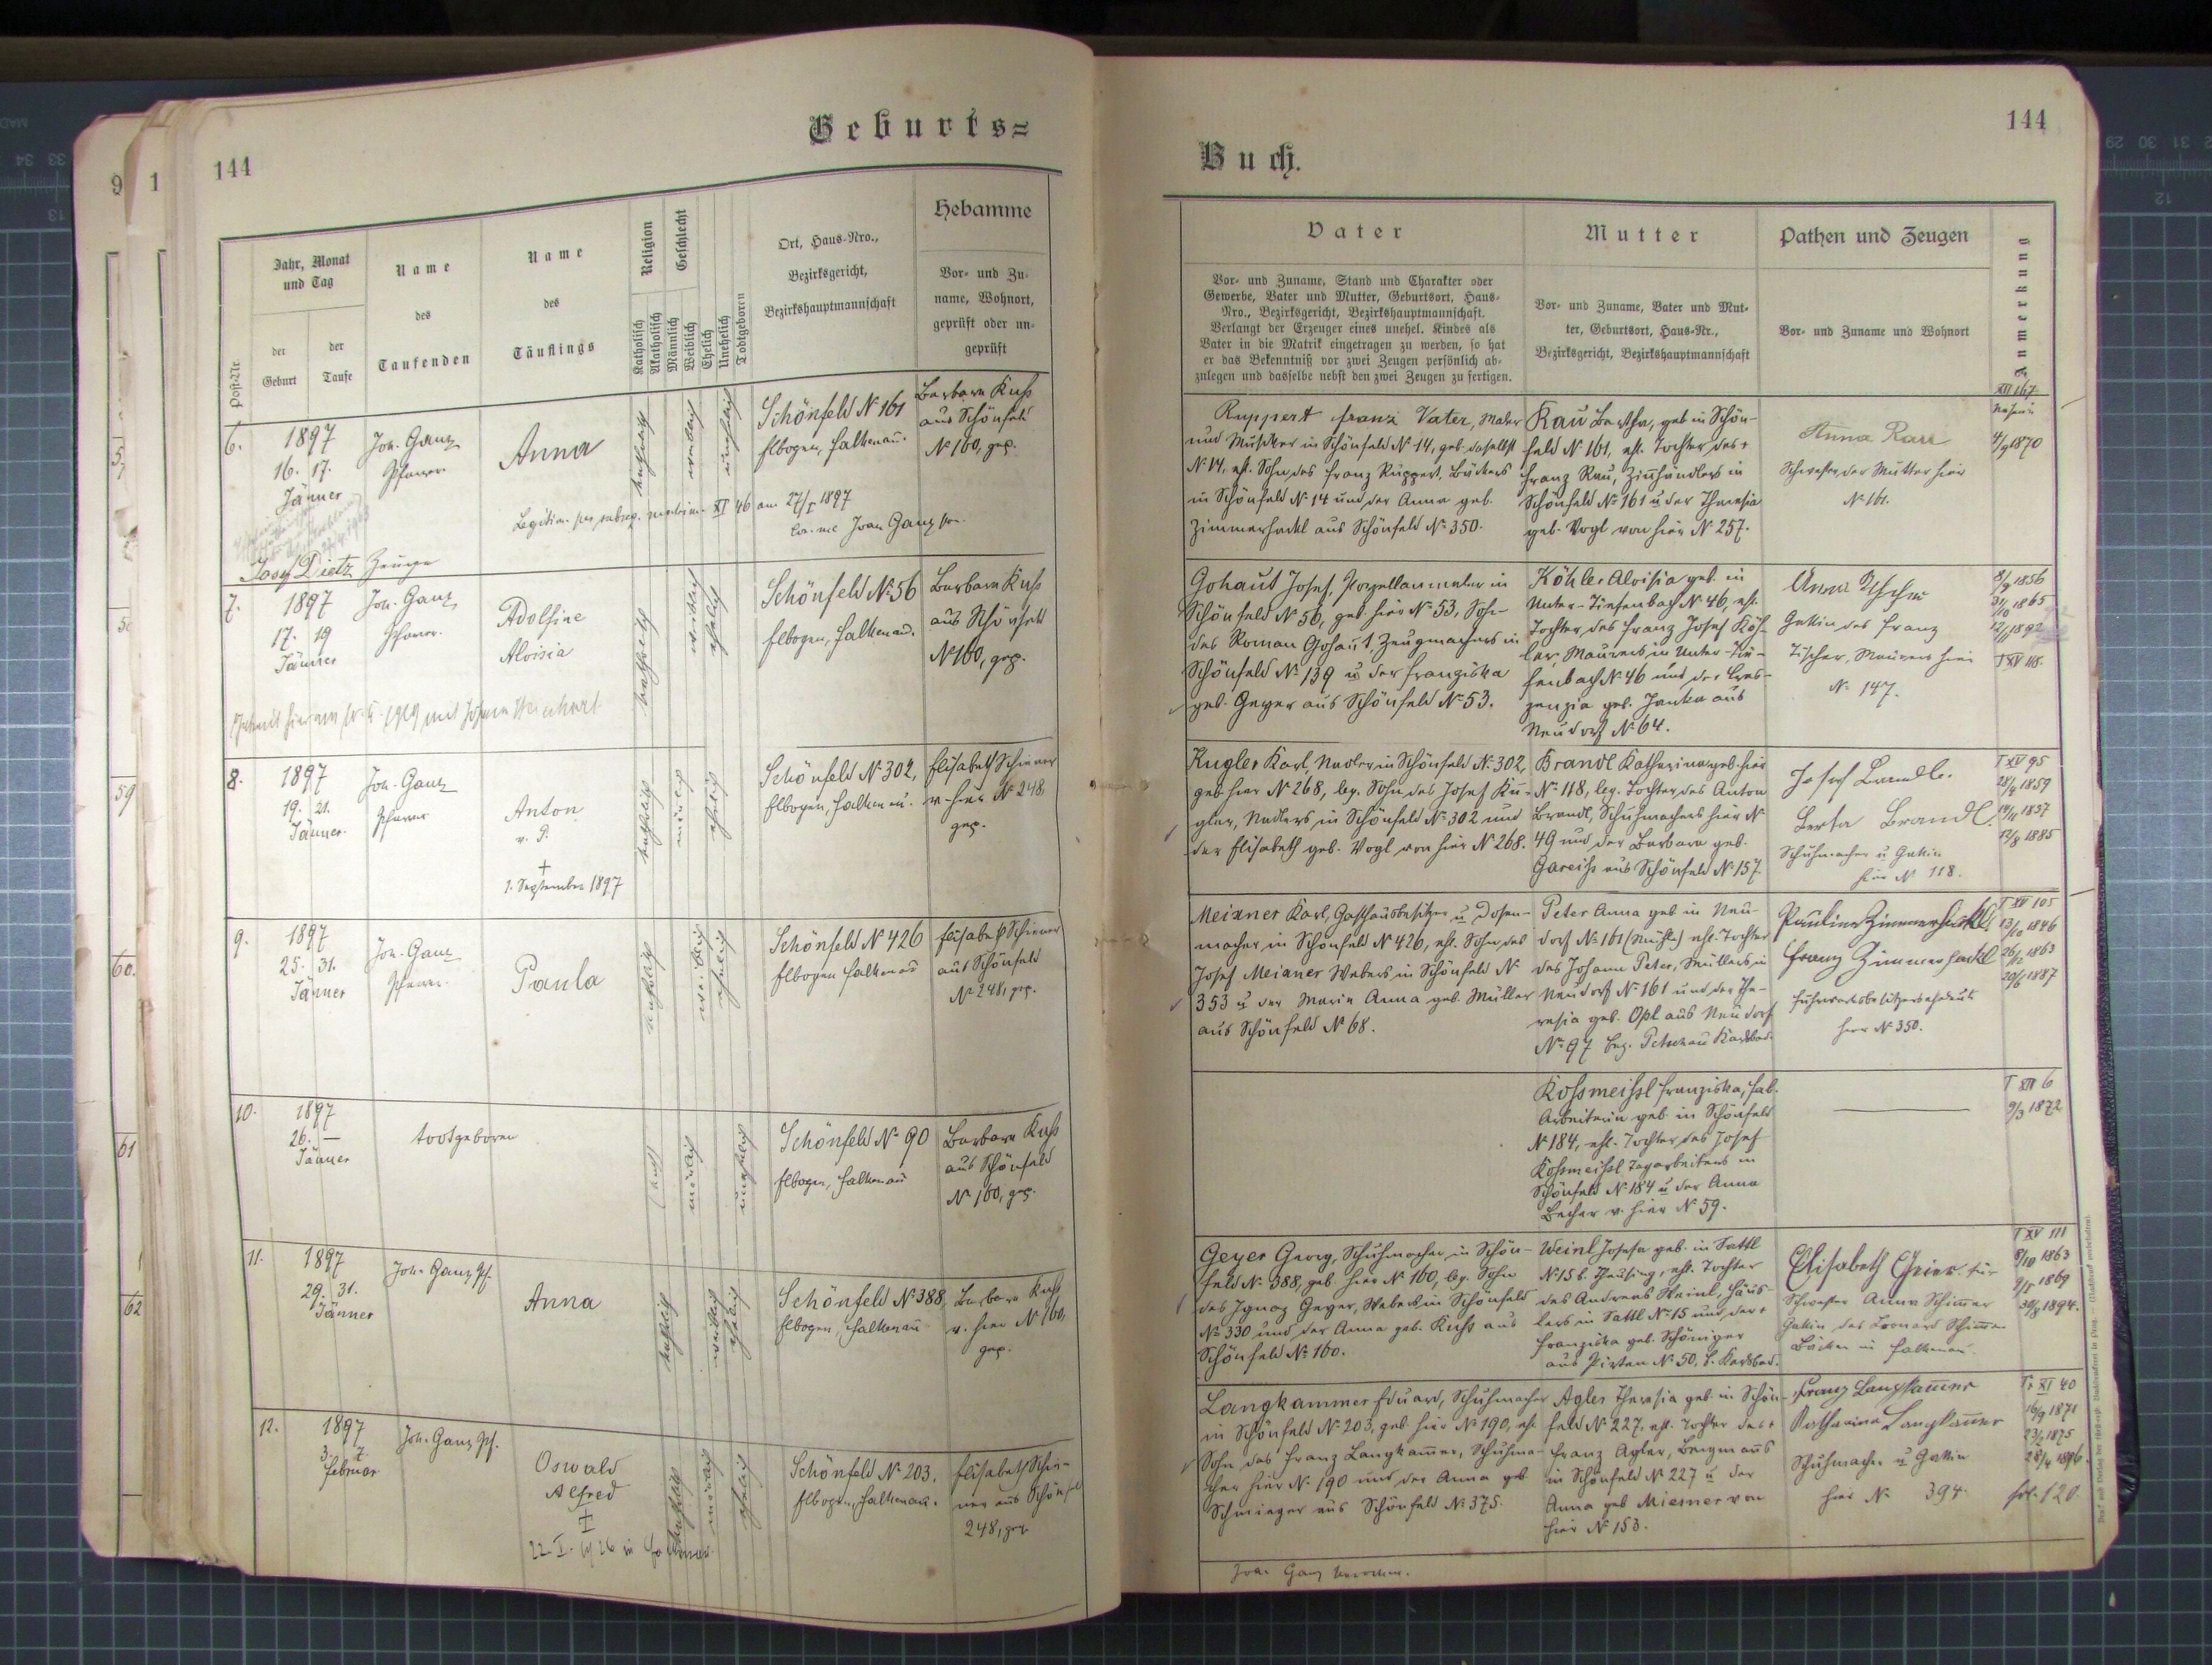 144
Geburts=
Jahr, Monat
und Tag
Name
des
Taufenden
Name
des
Täuflings
Religion
Geschlecht
Ort, Haus-Nro.,
Bezirksgericht,
Bezirkshauptmannschaft
Hebamme
Vor- und Zu-
name, Wohnort,
geprüft oder un-
geprüft
Post-Nr.
der
Geburt
der
Taufe
Katholisch
Akatholisch
Männlich
Weiblich
Ehelich
Unehelich
Todtgeboren
6.
1897
16. 17.
Jänner
Joh. Ganz
Pfarrer.
Anna
katholisch
weiblich
unehelich
Schönfeld N 161
Elbogen, Falkenau.
Barbara Kuhs
aus Schönfeld
N 160, gep.
Legitim. per subseq. matrim. XI 46 am 27/I 1897
Josef Dietz Zeuge
7.
1897
17. 19
Jänner
Joh. Ganz
Pfarrer.
Adolfine
Aloisia
katholisch
weiblich
ehelich
Schönfeld N. 56
Elbogen, Falkenau.
Barbara Kuhs
aus Schönfeld
N 160, gep.
8.
1897
19. 21.
Jänner.
Joh. Ganz
Pfarrer
Anton
v. P.
†
1. September 1897
katholisch
männlich
ehelich
Schönfeld N. 302,
Elbogen, Falkenau.
Elisabeth Schirmer
v. hier N 248,
gep.
9.
1897
25. 31.
Jänner
Joh. Ganz
Pfarrer.
Paula
katholisch
weiblich
ehelich
Schönfeld N 426
Elbogen Falkenau
Elisabeth Schirmer
aus Schönfeld
N. 248, gep.
10.
1897
26. —
Jänner
todtgeboren
männlich
unehelich
Schönfeld N. 90
Elbogen, Falkenau
Barbara Kuhs
aus Schönfeld
N. 160, gep.
11.
1897
29. 31.
Jänner
Joh. Ganz Pf.
Anna
katholisch
weiblich
ehelich
Schönfeld N. 388
Elbogen, Falkenau
Barbara Kuhs
v. hier N 160,
gep.
12.
1897
3. 7.
Februar
Joh. Ganz Pf.
Oswald
Alfred
†
22. I. 1926 in Falkenau.
katholisch
männlich
ehelich
Schönfeld N. 203.
Elbogen, Falkenau.
Elisabeth Schir-
mer aus Schönfeld
248, gep.
144
Buch.
Vater
Mutter
Pathen und Zeugen
Anmerkung
Vor- und Zuname, Stand und Charakter oder
Gewerbe, Vater und Mutter, Geburtsort, Haus-
Nro., Bezirksgericht, Bezirkshauptmannschaft.
Verlangt der Erzeuger eines unehel. Kindes als
Vater in die Matrik eingetragen zu werden, so hat
er das Bekenntniß vor zwei Zeugen persönlich ab-
zulegen und dasselbe nebst den zwei Zeugen zu fertigen.
Vor- und Zuname, Vater und Mut-
ter, Geburtsort, Haus-Nr.,
Bezirksgericht, Bezirkshauptmannschaft
Vor- und Zuname und Wohnort
Ruppert Franz Vater, Maler
und Musiker in Schönfeld N. 14, geb. daselbst
N 14, ehl. Sohn des Franz Ruppert, Bäckers
in Schönfeld N. 14 und der Anna geb.
Zimmerhackl aus Schönfeld N. 350.
Rau Bertha, geb in Schön-
feld N 161, ehl. Tochter des †
Franz Rau, Zinnhändlers in
Schönfeld N. 161 u der Theresia
geb. Vogl von hier N 257.
Anna Rau
Schwester der Mutter hier
N. 161.
XII 167.
4/9 1870
Gohaut Josef, Porzellanmaler in
Schönfeld N. 56, geb. hier N. 53, Sohn
des Roman Gohaut, Zeugmachers in
Schönfeld N. 139 u der Franziska
geb. Geyer aus Schönfeld N. 53.
Köhler Aloisia geb. in
Unter-Tiefenbach N. 46, ehl.
Tochter des Franz Josef Köh-
ler, Maurers in Unter-Tie-
fenbach N. 46 und der Cres-
zenzia geb. Janka aus
Neudorf N. 64.
Anna Tischer
Gattin des Franz
Tischer, Maurers hier
N. 147.
8/9 1856
31/10 1865
12/1 1892
T XV 118.
Kugler Karl, Nadler in Schönfeld N. 302,
geb hier N 268, leg. Sohn des Josef Ku-
gler, Nadlers in Schönfeld N. 302 und
der Elisabeth geb. Vogl von hier N 268.
Brandl Katharina geb. hier
N. 118, leg. Tochter des Anton
Brandl, Schuhmachers hier N
49 und der Barbara geb.
Gareihs aus Schönfeld N. 157
Josef Brandl.
Berta Brandl.
Schuhmacher u Gattin
hier N 118.
T XV 95
28/4 1859
12/8 1885
Meixner Karl, Gasthausbesitzer u Dosen-
macher in Schönfeld N 426, ehl. Sohn des
Josef Meixner Webers in Schönfeld N
353 u der Maria Anna geb. Müller
aus Schönfeld N 68.
Peter Anna geb in Neu-
dorf N. 161 (Mühle) ehl. Tochter
des Johann Peter, Müllers in
Neudorf N. 161 und der The-
resia geb. Opl aus Neudorf
N. 97 bez. Petschau Karlsbad.
Pauline Zimmerhackl
Franz Zimmerhackl
Fuhrwerksbesitzerseheleute
hier N 350.
T XV 105
13/10 1846
26/12 1863
20/6 1887
Kohsmeihsl Franziska, Fab.
Arbeiterin geb. in Schönfeld
N 184, ehl. Tochter des Josef
Kohsmeihsl Tagarbeiters in
Schönfeld N 184 u der Anna
Becher v. hier N 59.
T XII 6
9/3 1872
Geyer Georg, Schuhmacher in Schön-
feld N. 388, geb. hier N. 160, leg. Sohn
des Ignaz Geyer, Webers in Schönfeld
N. 330 und der Anna geb. Kuhs aus
Schönfeld N. 160.
Weinl Josefa geb. in Sattl
N 15 b. Theusing, ehl. Tochter
des Andreas Weinl, Häus-
lers in Sattl N. 15 und der †
Franziska geb. Schöniger
aus Pirten N. 50, b. Karlsbad.
Elisabeth Geier für
Schwester Anna Schimer
Gattin des Leonard Schimer
Bäcker in Falkenau.
T XV 111
8/10 1863
9/1 1869
30/8 1894.
Langkammer Eduard, Schuhmacher
in Schönfeld N. 203, geb. hier N. 190, eh.
Sohn des Franz Langkamer, Schuhma-
cher hier N. 190 und der Anna geb
Schmieger aus Schönfeld N. 375.
Agler Theresia geb. in Schön-
feld N 227, ehl. Tochter des †
Franz Agler, Bergmanns
in Schönfeld N. 227 u der
Anna geb Miesner von
hier N. 153.
Franz Langkamer
Katharina Langkamer
Schuhmacher u Gattin
hier N. 394.
Tr XI 40
16/9 1871
23/2 1875
28/4 1896.
fol. 120.